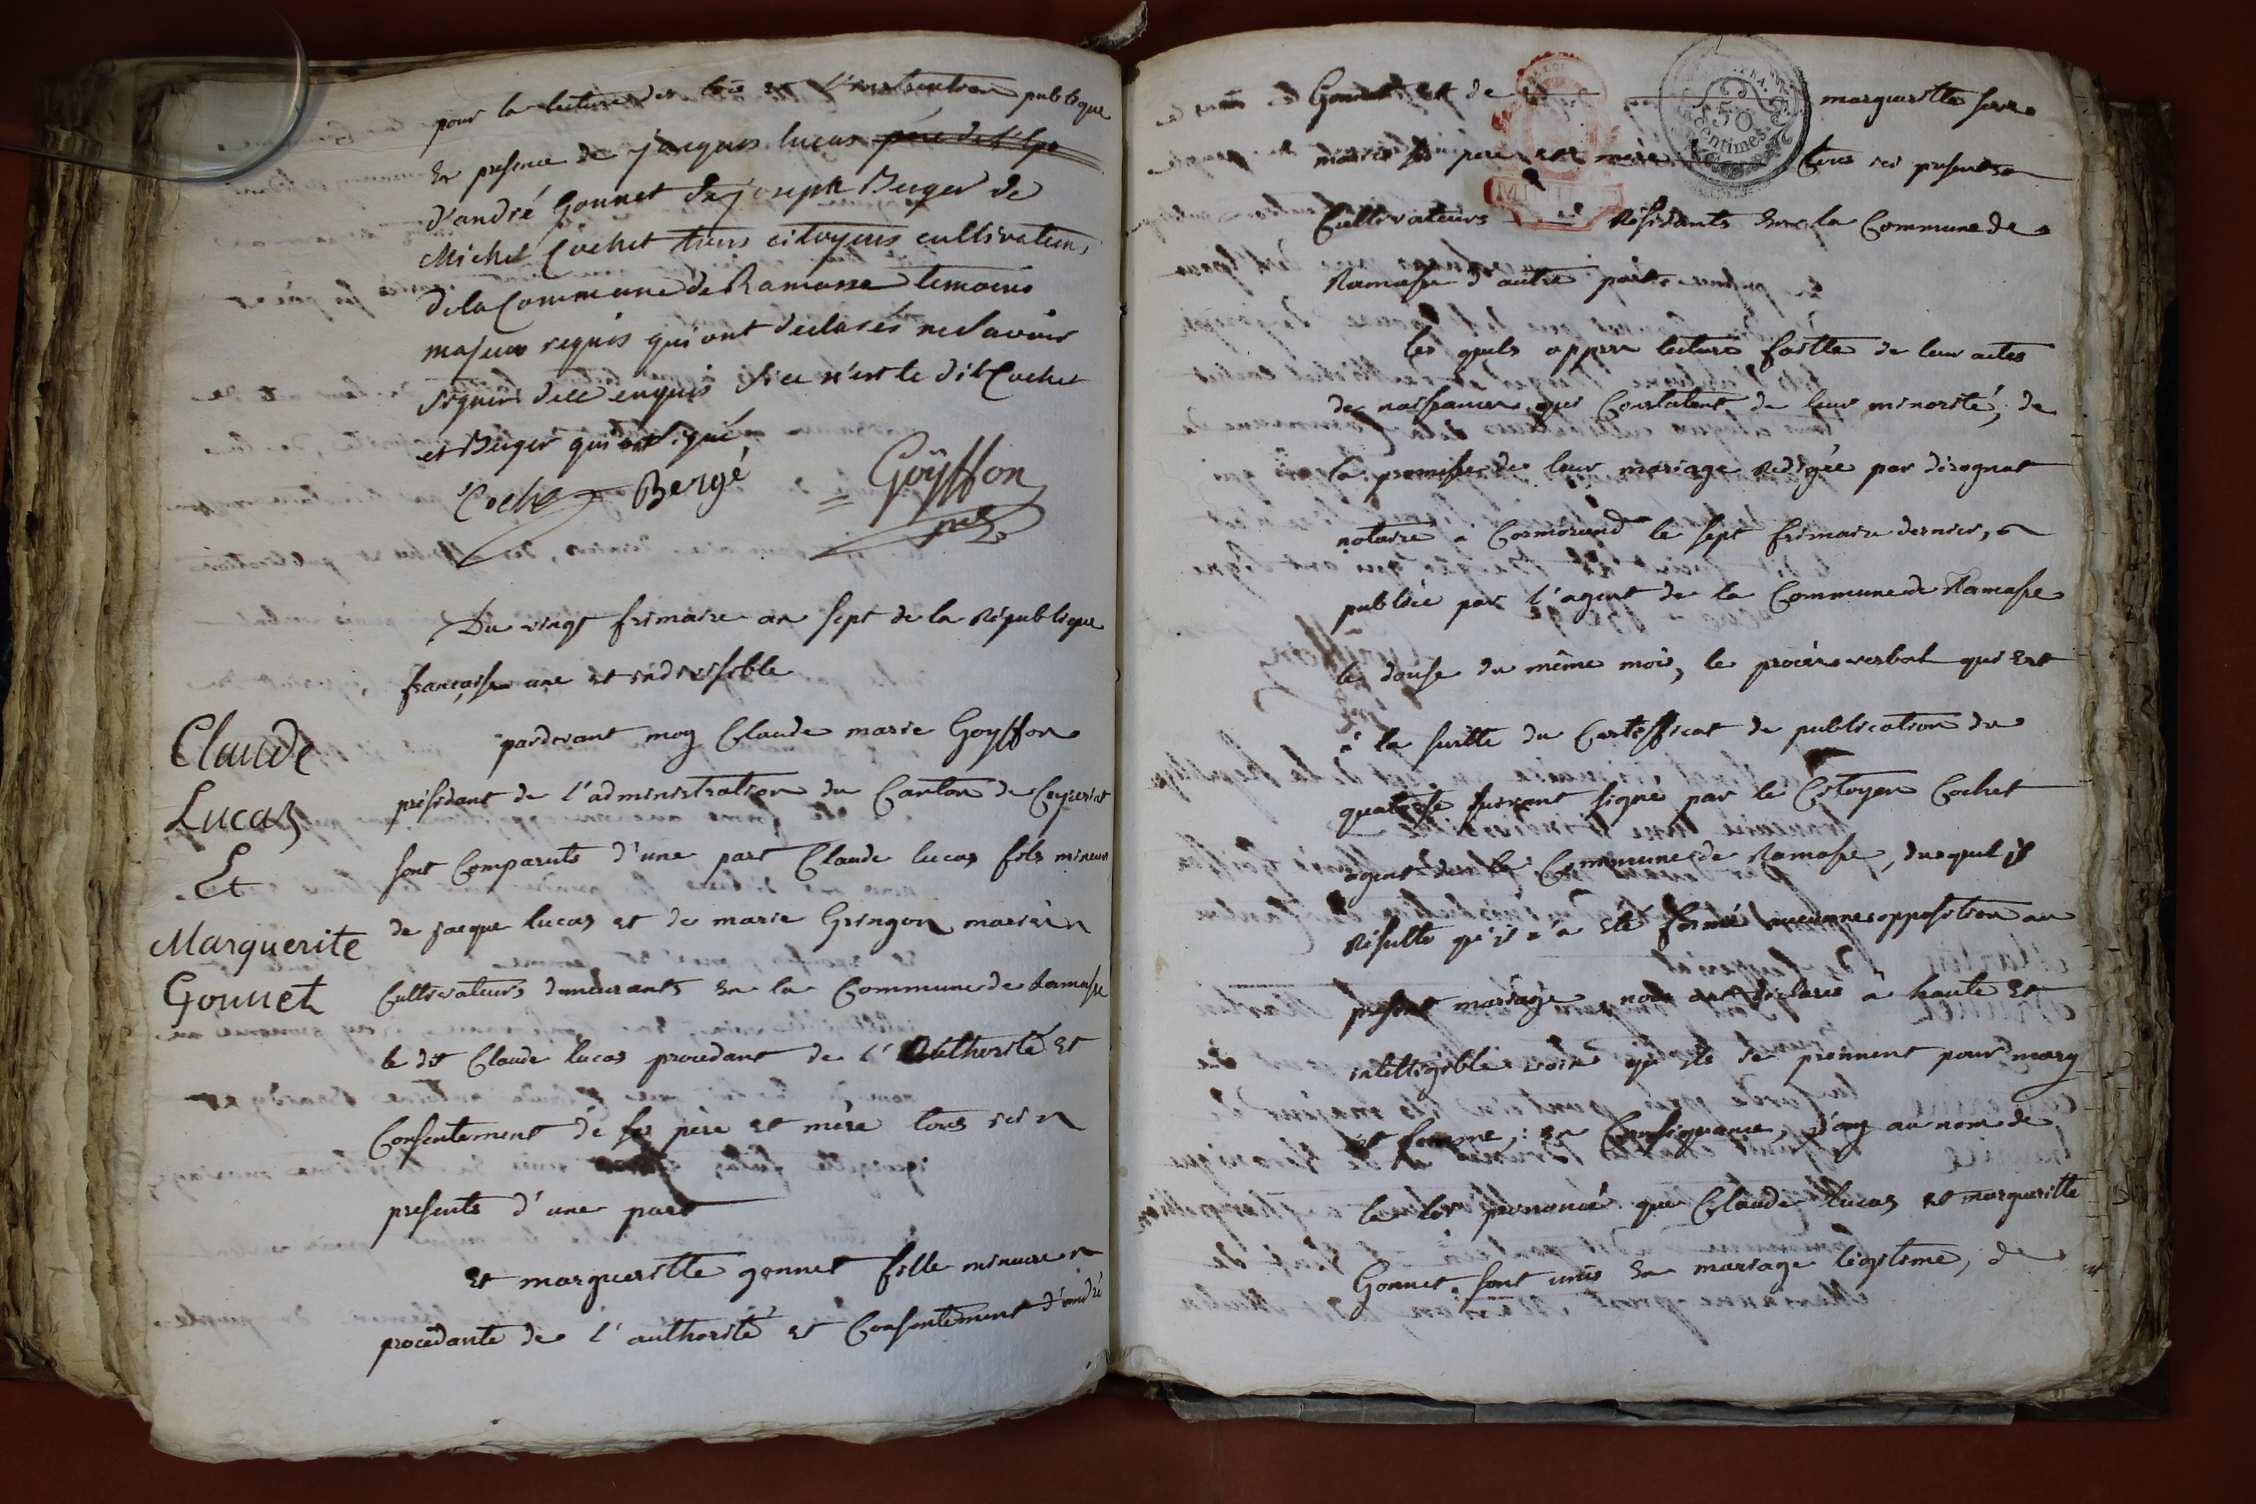 pour la lecture des lois et l'instruction publique
En presence de jacques lucas père de l'Epo
d'andré Gonnet de joseph Buger de
Michel Cochet tous citoyens cultivateurs
de la Commune de Ramasse temoins
majeurs requis qui ont declarés ne savoir
signer de ce enquis si ce n'est le dit Cochet
et Buger qui ont signé
Coche Bergé Goÿffon
pnt
Du vingt frimaire an sept de la République
française une et indivisible
Claude
Lucas
Et
Marguerite
Gonnet
pardevant moy Claude marie Goyffon
présidant de l'administration du Canton de Ceyzeriat
sont Comparuts d'une part Claude lucas fils mineur
de jacque lucas et de marie Gringon mariés
Cultivateurs demeurants en la Commune de Ramasse
le dit Claude lucas procedant de l'authorité et
Consentement de ses père et mère tous ici
presents d'une part
et margueritte gonnet fille mineure
procedante de l'authorité et Consentement d'andré
Gonnet et de margueritte serre
mariés ses pere et mère tous ici presents
50
Centimes
Cultivateurs Résidants en la Commune de
Ramasse d'autre part
les quels apprès lecture faitte de leur actes
de naissances qui Constatent de leur minorité, de
la promesse de leur mariage Redigée par dirognat
notaire à Cormorand le sept frimaire dernier,
publiée par l'agent de la Commune de Ramasse
le douse du même mois, le procès verbal qui est
à la suitte du Certifficat de publication du
quatorse suivant signé par le Citoyen Cochet
agent de la Commune de Ramasse, duquel il
Résulte qu'il n'a été formé aucunne opposition au
present mariage, nous ont declarés à haute et
intelligible voix qu'ils se prennent pour mary
et femme; en Consequance, j'ay au nom de
la loi prononcé que Claude lucas et margueritte
Gonnet sont unis en mariage légitime, de